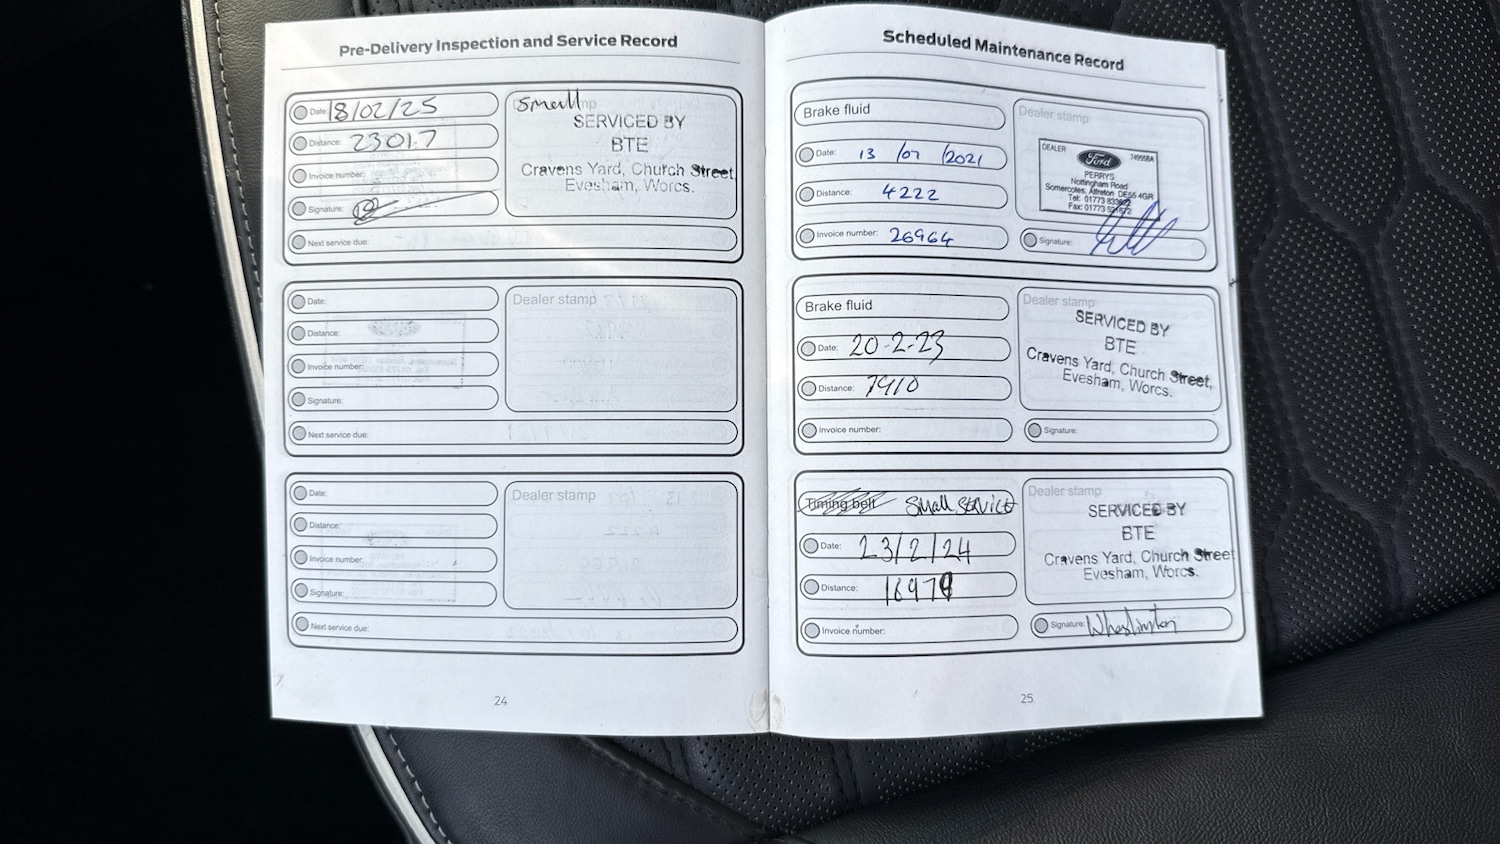 Pre-Delivery Inspection and Service Record
Date: 18/02/25
Distance: 23017
Invoice number:
Signature:
Next service due:
Small
SERVICED BY
BTE
Cravens Yard, Church Street
Evesham, Worcs.
Date:
Distance:
Invoice number:
Signature:
Next service due:
Dealer stamp
Date:
Distance:
Invoice number:
Signature:
Next service due:
Dealer stamp
24
Scheduled Maintenance Record
Brake fluid
Date: 13 /07 /2021
Distance: 4222
Invoice number: 26964
Dealer stamp
DEALER 74955BA
Ford
PERRYS
Nottingham Road
Somercotes, Alfreton DE55 4GR
Tel: 01773
Fax: 01773
Signature:
Brake fluid
Date: 20-2-23
Distance: 7910
Invoice number:
Dealer stamp
SERVICED BY
BTE
Cravens Yard, Church Street,
Evesham, Worcs.
Signature:
Timing belt Small Service
Date: 23/2/24
Distance:
Invoice number:
Dealer stamp
SERVICED BY
BTE
Cravens Yard, Church Street
Evesham, Worcs.
Signature:
25